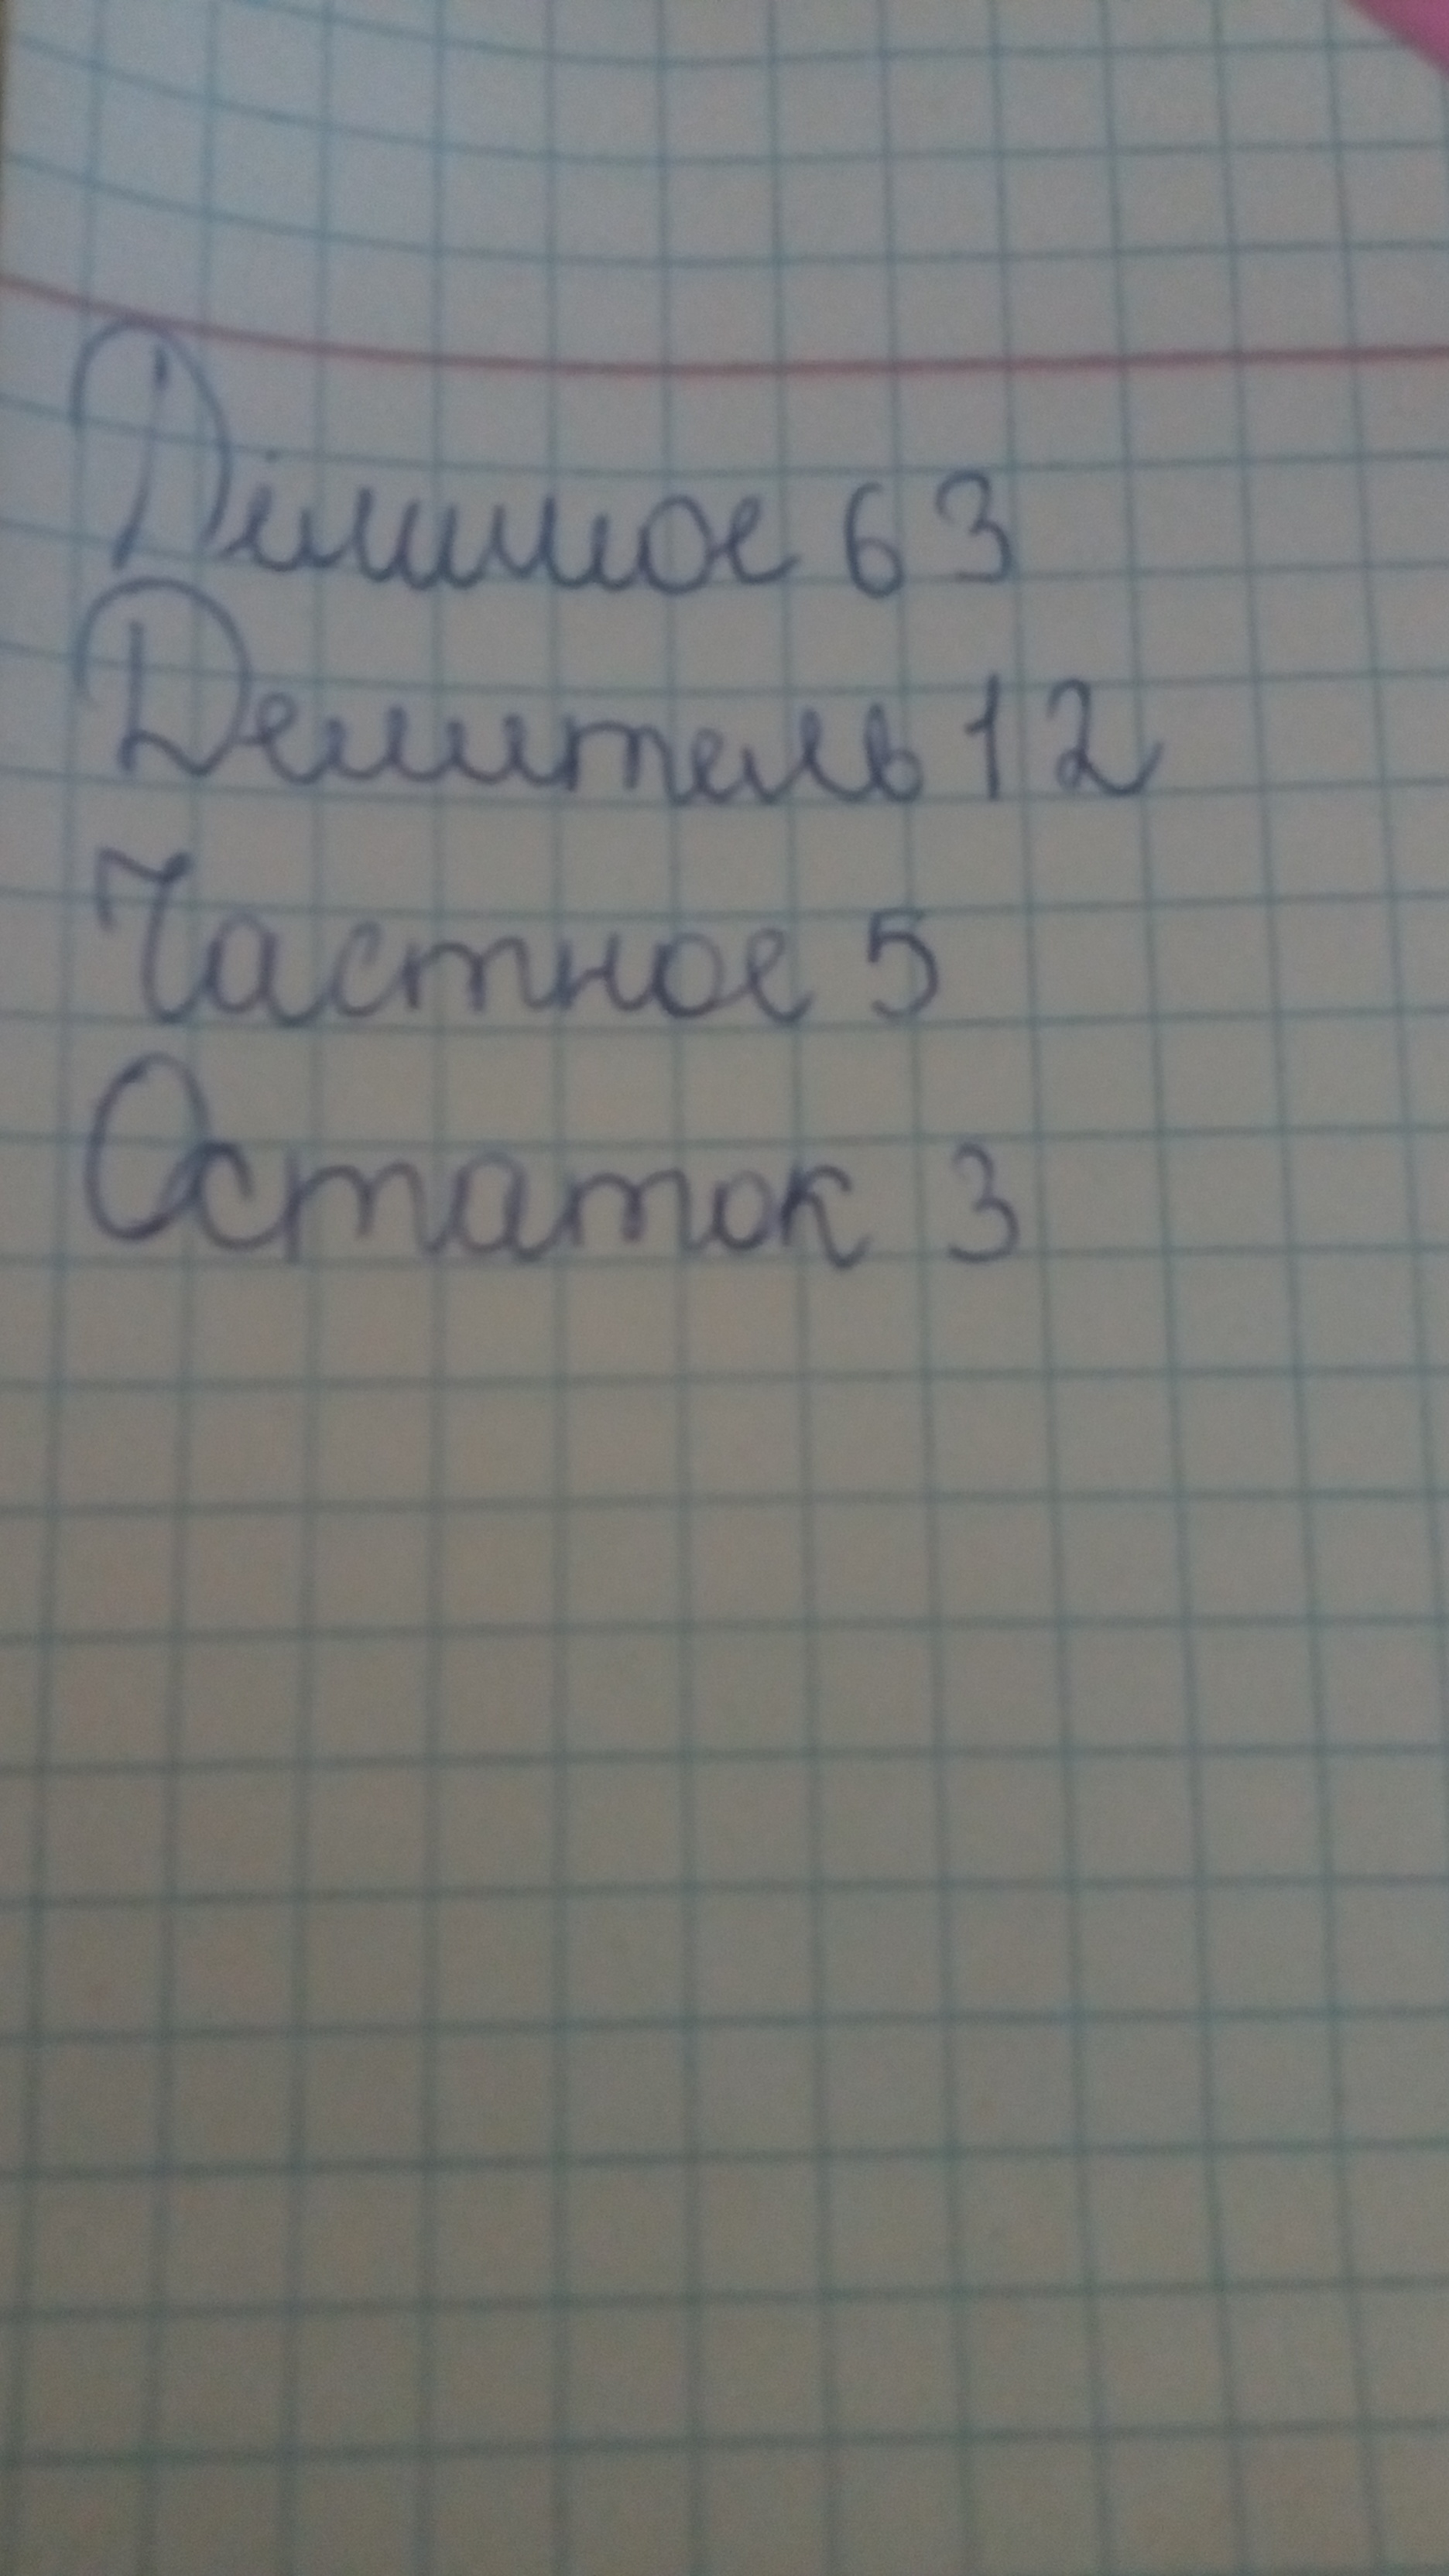 Делимое 63
Делитель 12
Частное 5
Остаток 3